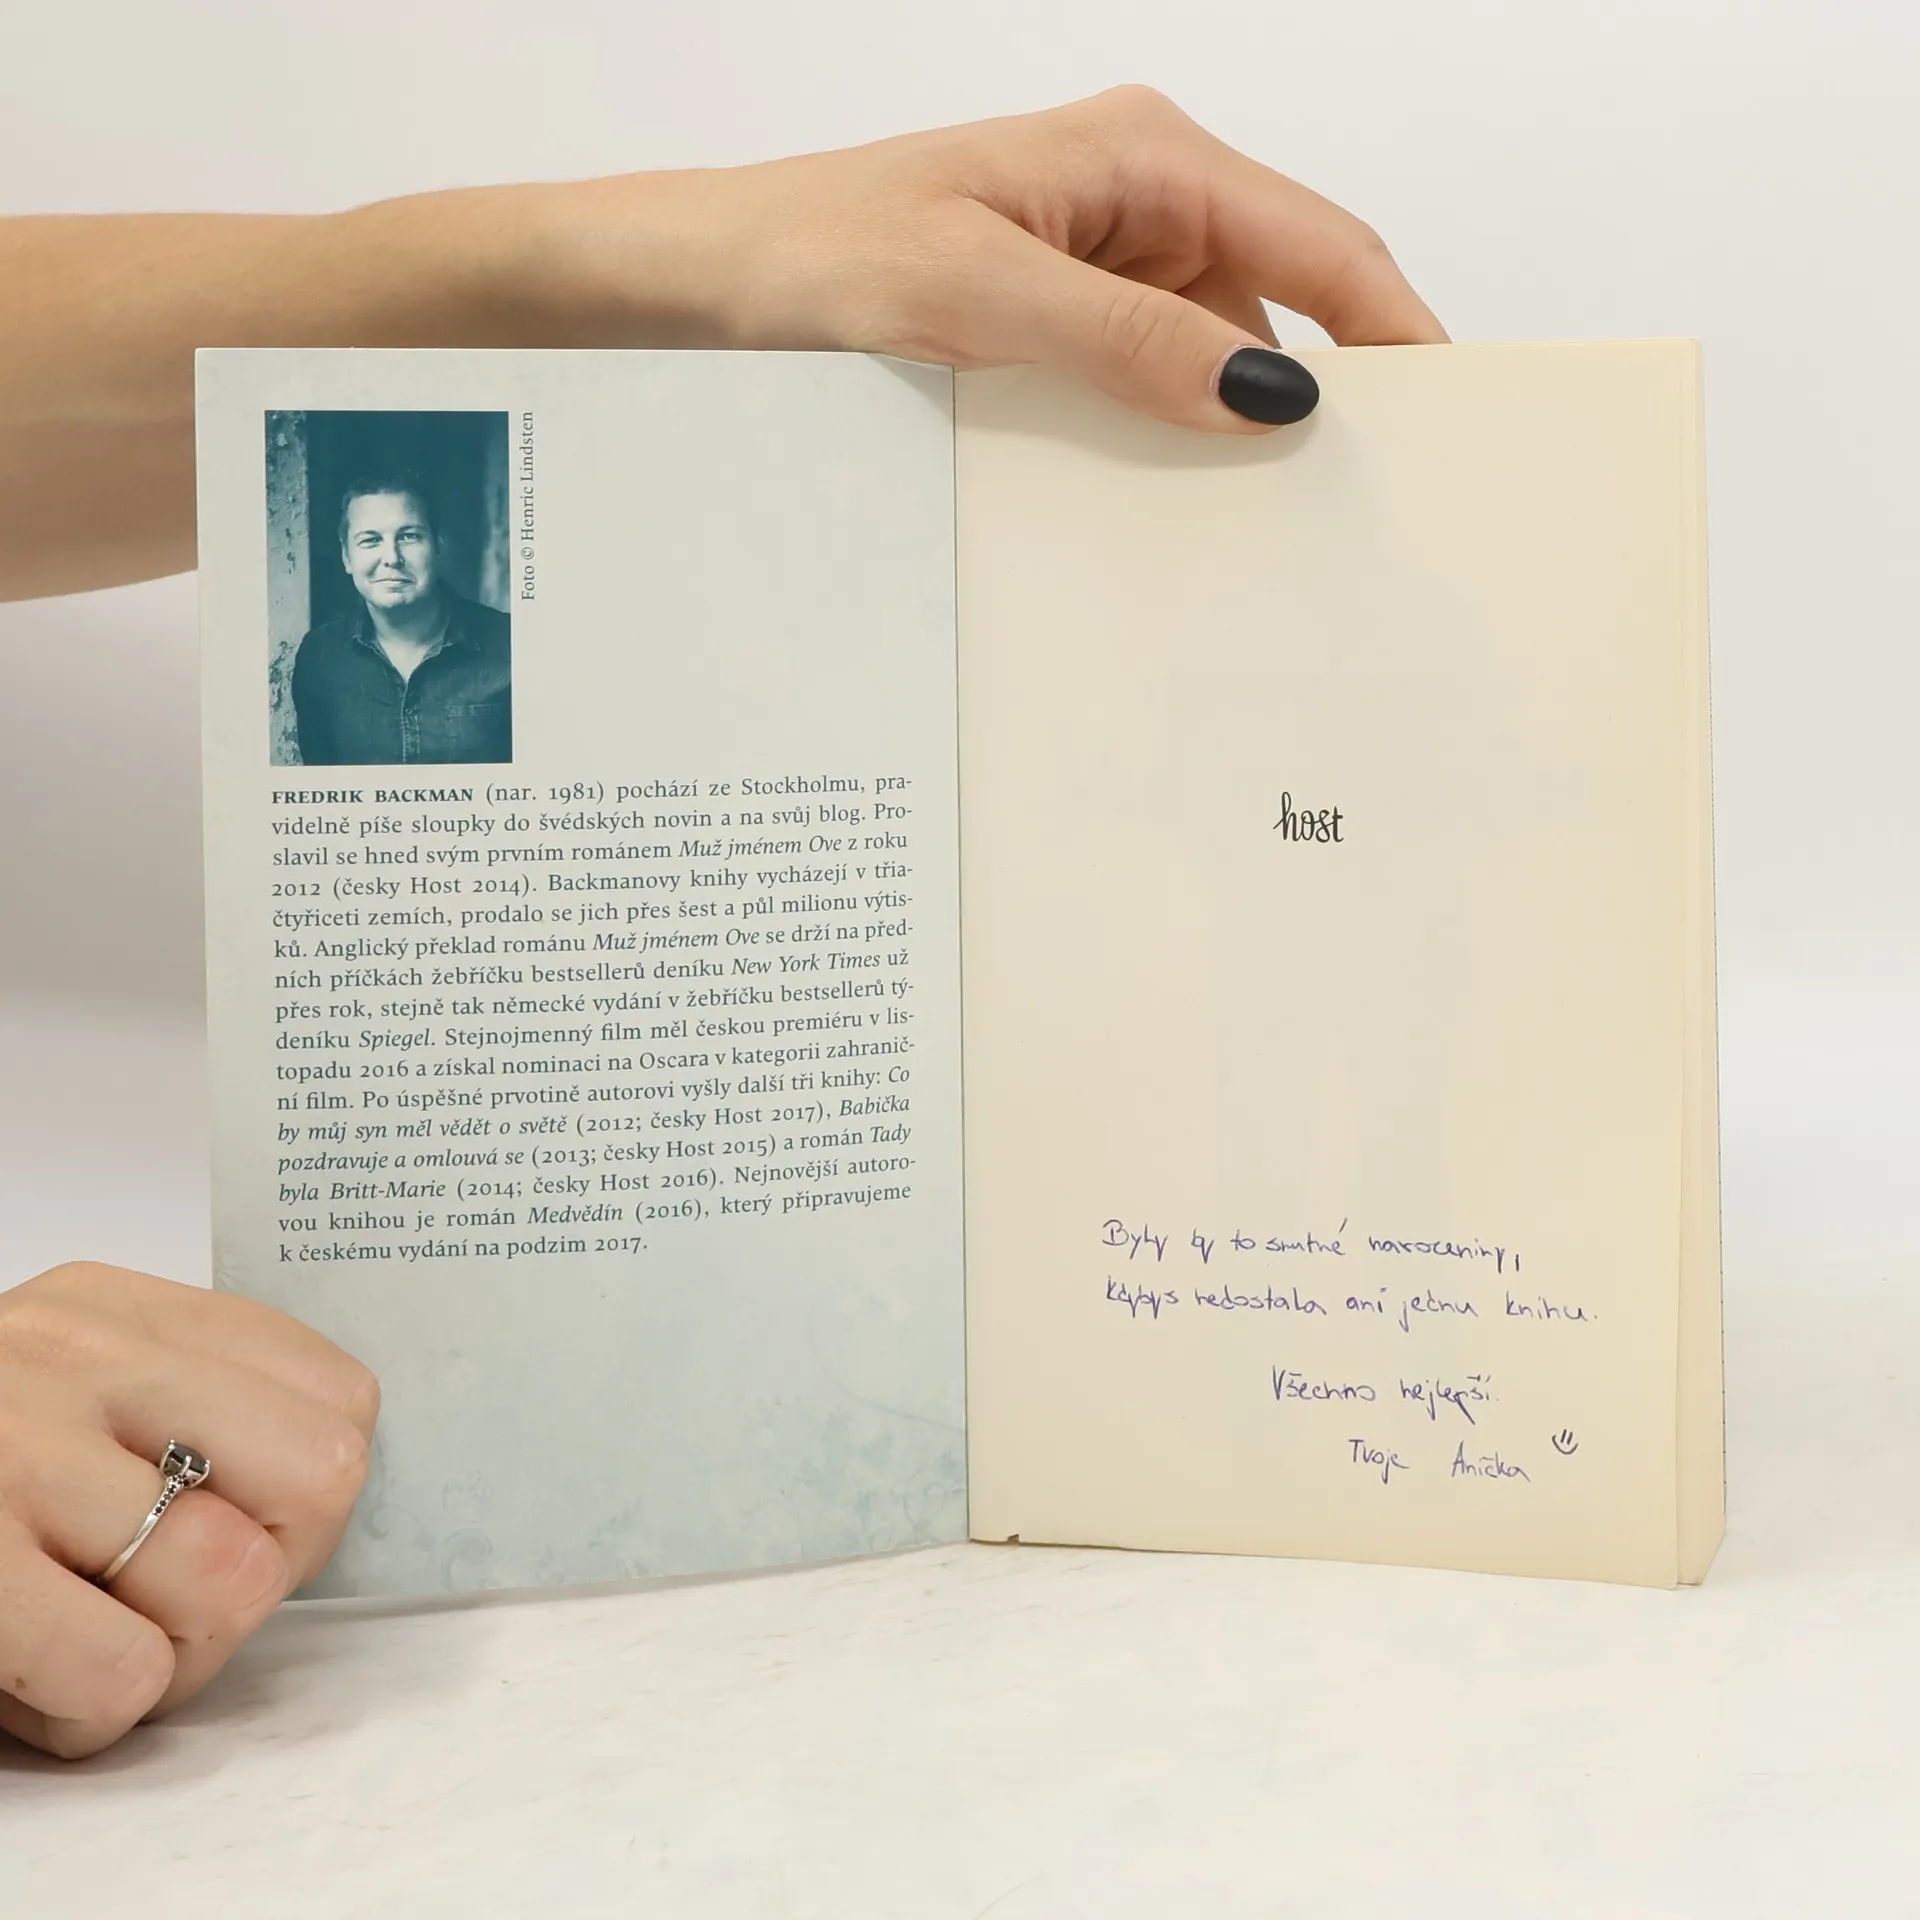 Foto © Henric Lindsten
FREDRIK BACKMAN (nar. 1981) pochází ze Stockholmu, pra-
videlně píše sloupky do švédských novin a na svůj blog. Pro-
slavil se hned svým prvním románem Muž jménem Ove z roku
2012 (česky Host 2014). Backmanovy knihy vycházejí v třia-
čtyřiceti zemích, prodalo se jich přes šest a půl milionu výtis-
ků. Anglický překlad románu Muž jménem Ove se drží na před-
ních příčkách žebříčku bestsellerů deníku New York Times už
přes rok, stejně tak německé vydání v žebříčku bestsellerů tý-
deníku Spiegel. Stejnojmenný film měl českou premiéru v lis-
topadu 2016 a získal nominaci na Oscara v kategorii zahranič-
ní film. Po úspěšné prvotině autorovi vyšly další tři knihy: Co
by můj syn měl vědět o světě (2012; česky Host 2017), Babička
pozdravuje a omlouvá se (2013; česky Host 2015) a román Tady
byla Britt-Marie (2014; česky Host 2016). Nejnovější autoro-
vou knihou je román Medvědín (2016), který připravujeme
k českému vydání na podzim 2017.
host
Byly by to smutné narozeniny,
kdybys nedostala ani jednu knihu.
Všechno nejlepší.
Tvoje Anička